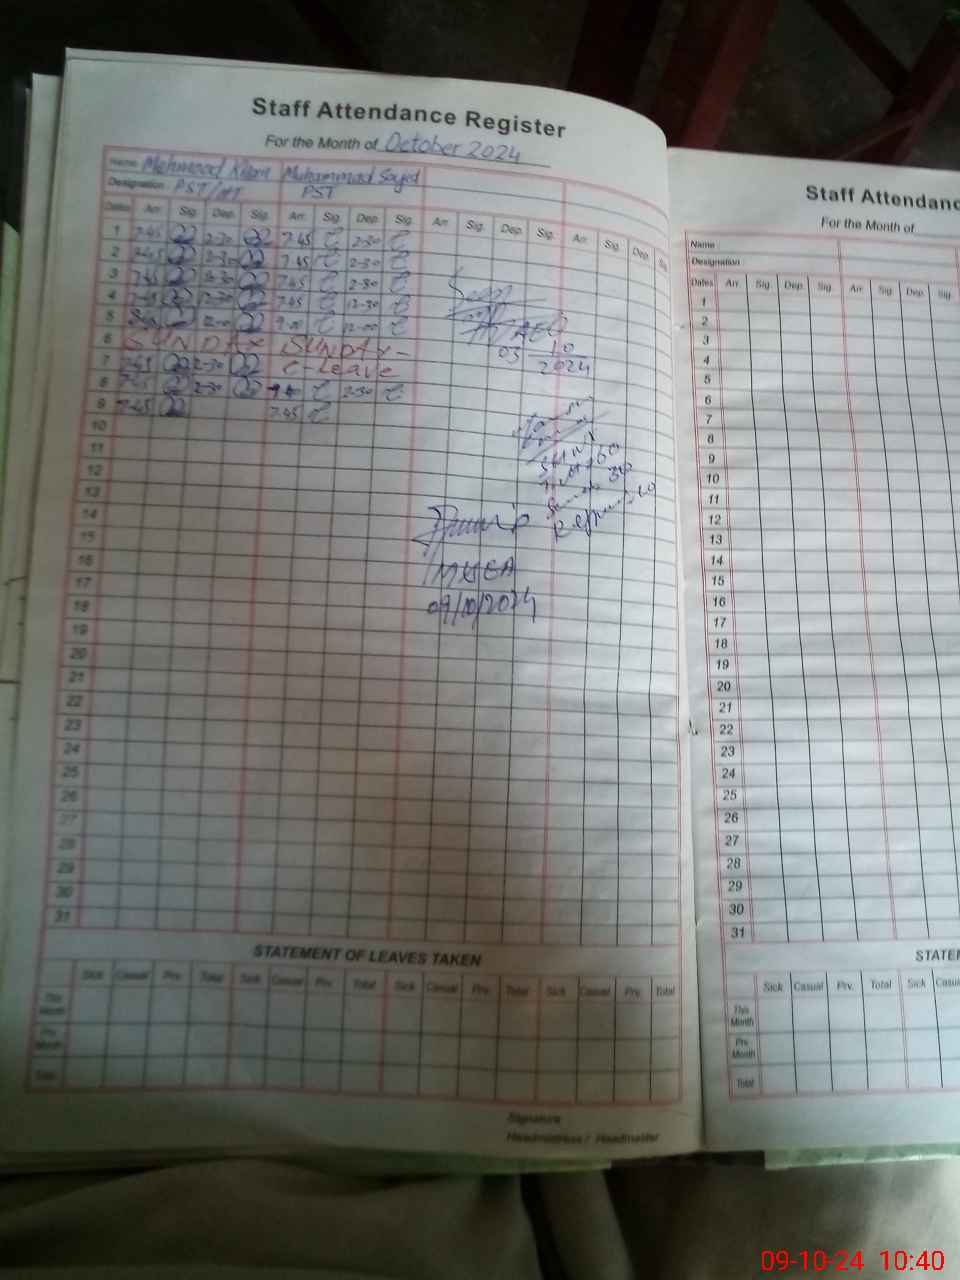 Staff Attendance Register
For the Month of October 2024
Name Mehmood Muhammad Sayed
Designation PST/HT PST
Dates Arr. Sig. Dep. Sig. Arr. Sig. Dep. Sig. Arr. Sig. Dep. Sig. Arr. Sig. Dep. Sig.
1 7.45 2-30 7.45 2-30
2 7.45 2-30 7.45 2-30
3 7.45 2-30 7.45 2-30
4 7.45 12-30 7.45 12-30
5 12-00 9-00 12-00
6 SUNDAY SUNDAY
7 7.45 2-30 C-Leave
8 7.45 2-30 2-30
9 7.45 7.45
10
11
12
13
14
15
16
17
18
19
20
21
22
23
24
25
26
27
28
29
30
31
03 10
2024
MSEA
09/10/2024
STATEMENT OF LEAVES TAKEN
Sick Casual Prv. Total Sick Casual Prv. Total Sick Casual Prv. Total Sick Casual Prv. Total
This Month
Prv. Month
Total
Signature
Headmistress / Headmaster
Staff Attendanc
For the Month of
Name
Designation
Dates Arr. Sig. Dep. Sig. Arr. Sig. Dep. Sig.
1
2
3
4
5
6
7
8
9
10
11
12
13
14
15
16
17
18
19
20
21
22
23
24
25
26
27
28
29
30
31
STATEM
Sick Casual Prv. Total Sick Casua
This Month
Prv. Month
Total
09-10-24 10:40